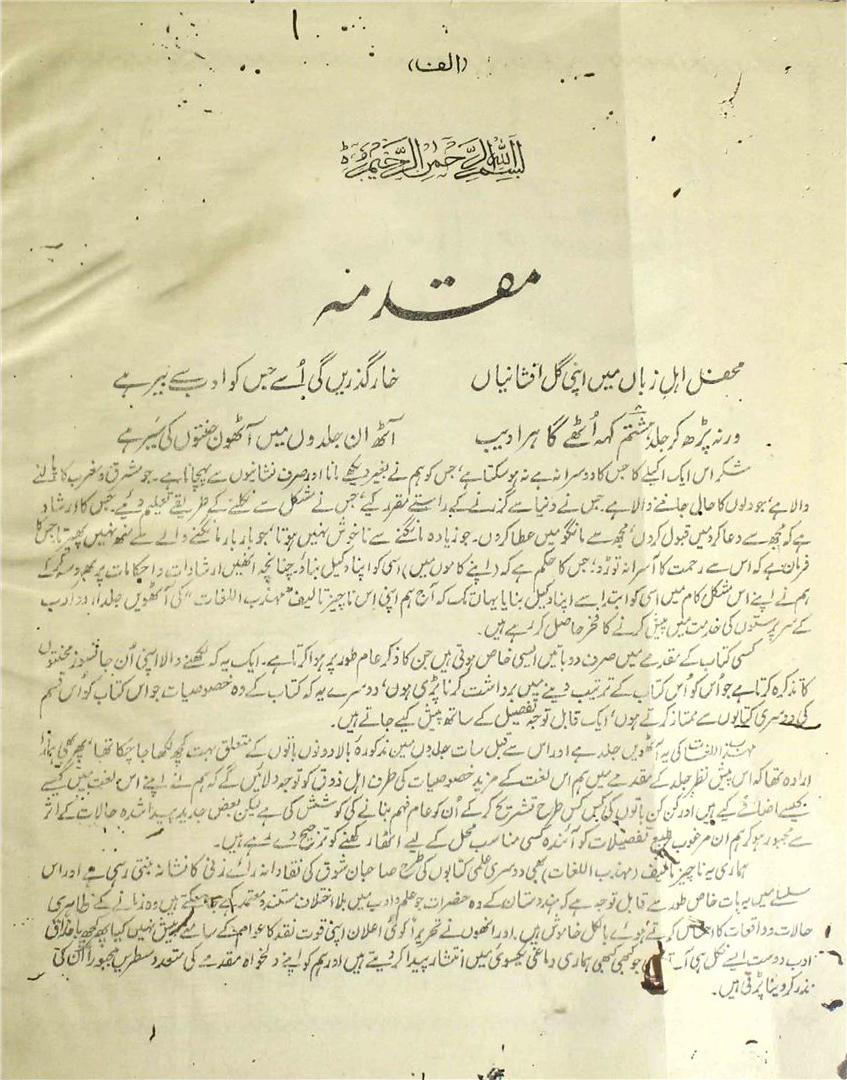 (الف)
بِسْمِ اللهِ الرَّحْمٰنِ الرَّحِيْمِ
مقدمہ
محفل اہلِ زباں میں اپنی گل افشانیاں خار گذریں گی اُسے جس کو ادب سے بَیر ہے
ورنہ پڑھ کر جلدِ ہشتم کہہ اُٹھے گا ہر ادیب آٹھ ان جلدوں میں آٹھوں جنتوں کی سَیر ہے
شکر اس ایک اکیلے کا جس کا دوسرا نہ ہے نہ ہو سکتا ہے، جس کو ہم نے بغیر دیکھے مانا اور صرف نشانیوں سے پہچانا ہے۔ جو مشرق و مغرب کا پالنے
والا ہے، جو دلوں کا حال جاننے والا ہے۔ جس نے دنیا سے گزرنے کے راستے مقرر کیے، جس نے مشکل سے نکلنے کے طریقے تعلیم دئیے۔ جس کا ارشاد
ہے کہ مجھ سے دعا کرو میں قبول کروں، مجھ سے مانگو میں عطا کروں۔ جو زیادہ مانگنے سے ناخوش نہیں ہوتا، جو بار بار مانگنے والے سے منھ نہیں پھیرتا جس کا
فرمان ہے کہ اس سے رحمت کا آسرا نہ توڑو، جس کا حکم ہے کہ (اپنے کاموں میں) اسی کو اپنا وکیل بناؤ۔ چنانچہ انھیں ارشادات و احکامات پر بھروسہ کرکے
ہم نے اپنے اس مشکل کام میں اسی کو ابتدا سے اپنا وکیل بنایا یہاں تک کہ آج ہم اپنی اس ناچیز تالیف "مہذب اللغات" کی آٹھویں جلد اُردو ادب
کے سرپرستوں کی خدمت میں پیش کرنے کا فخر حاصل کر رہے ہیں۔
کسی کتاب کے مقدمے میں صرف دو باتیں ایسی خاص ہوتی ہیں جن کا ذکر عام طور پر ہوا کرتا ہے۔ ایک یہ کہ لکھنے والا اپنی اُن جانسوز محنتوں
کا تذکرہ کرتا ہے جو اُس کو اُس کتاب کے ترتیب دینے میں برداشت کرنا پڑی ہوں، دوسرے یہ کہ کتاب کے وہ خصوصیات جو اس کتاب کو اُس قسم
کی دوسری کتابوں سے ممتاز کرتے ہوں، ایک قابل توجہ تفصیل کے ساتھ پیش کیے جاتے ہیں۔
مہذب اللغات کی یہ آٹھویں جلد ہے اور اس سے قبل سات جلدوں میں مذکورہ بالا دونوں باتوں کے متعلق بہت کچھ لکھا جا چکا تھا، پھر بھی ہمارا
ارادہ تھا کہ اس پیش نظر جلد کے مقدمے میں ہم اس لغت کے مزید خصوصیات کی طرف اہل ذوق کو توجہ دلائیں گے کہ ہم نے اپنے اس لغت میں کیسے
کیسے اضافے کیے ہیں اور کن کن باتوں کی کس کس طرح تشریح کرکے اُن کو عام فہم بنانے کی کوشش کی ہے لیکن بعض جدید پیدا شدہ حالات کے اثر
سے مجبور ہو کر ہم ان مرغوب طبع تفصیلات کو آئندہ کسی مناسب محل کے لیے اُٹھا رکھنے کو ترجیح دے رہے ہیں۔
ہماری یہ ناچیز تالیف (مہذب اللغات) بھی دوسری علمی کتابوں کی طرح صاحبان شوق کی نقادانہ رائے زنی کا نشانہ بنتی رہی ہے اور اس
سلسلے میں یہ بات خاص طور سے قابل توجہ ہے کہ ہندوستان کے وہ حضرات جو علم و ادب میں بلا اختلاف مستند و معتمد کہے جا سکتے ہیں وہ زمانے کے ظاہری
حالات و واقعات کا احساس کرتے ہوئے بالکل خاموش ہیں۔ اور انھوں نے تحریراً کوئی اعلان اپنی قوت نقد کا عوام کے سامنے پیش نہیں کیا پھر کچھ با مذاق
ادب دوست ایسے نکل ہی آتے جو کبھی کبھی ہماری دماغی یکسوئی میں انتشار پیدا کر دیتے ہیں اور ہم کو اپنے دلخواہ مقدمے کی متعدد سطریں مجبوراً اُن کی
نذر کر دینا پڑتی ہیں۔